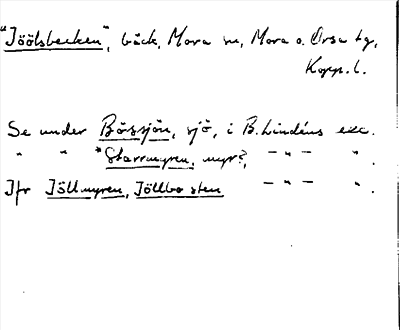 "Jöölsbecken", bäck, Mora sn, Mora o. Orsa tg,
Kopp. l.
Se under Börsjön, sjö, i B. Lindéns exc.
" " *Starrmyren, myr?, — " — " .
Jfr Jöllmyren, Jöllbosten — " — " .